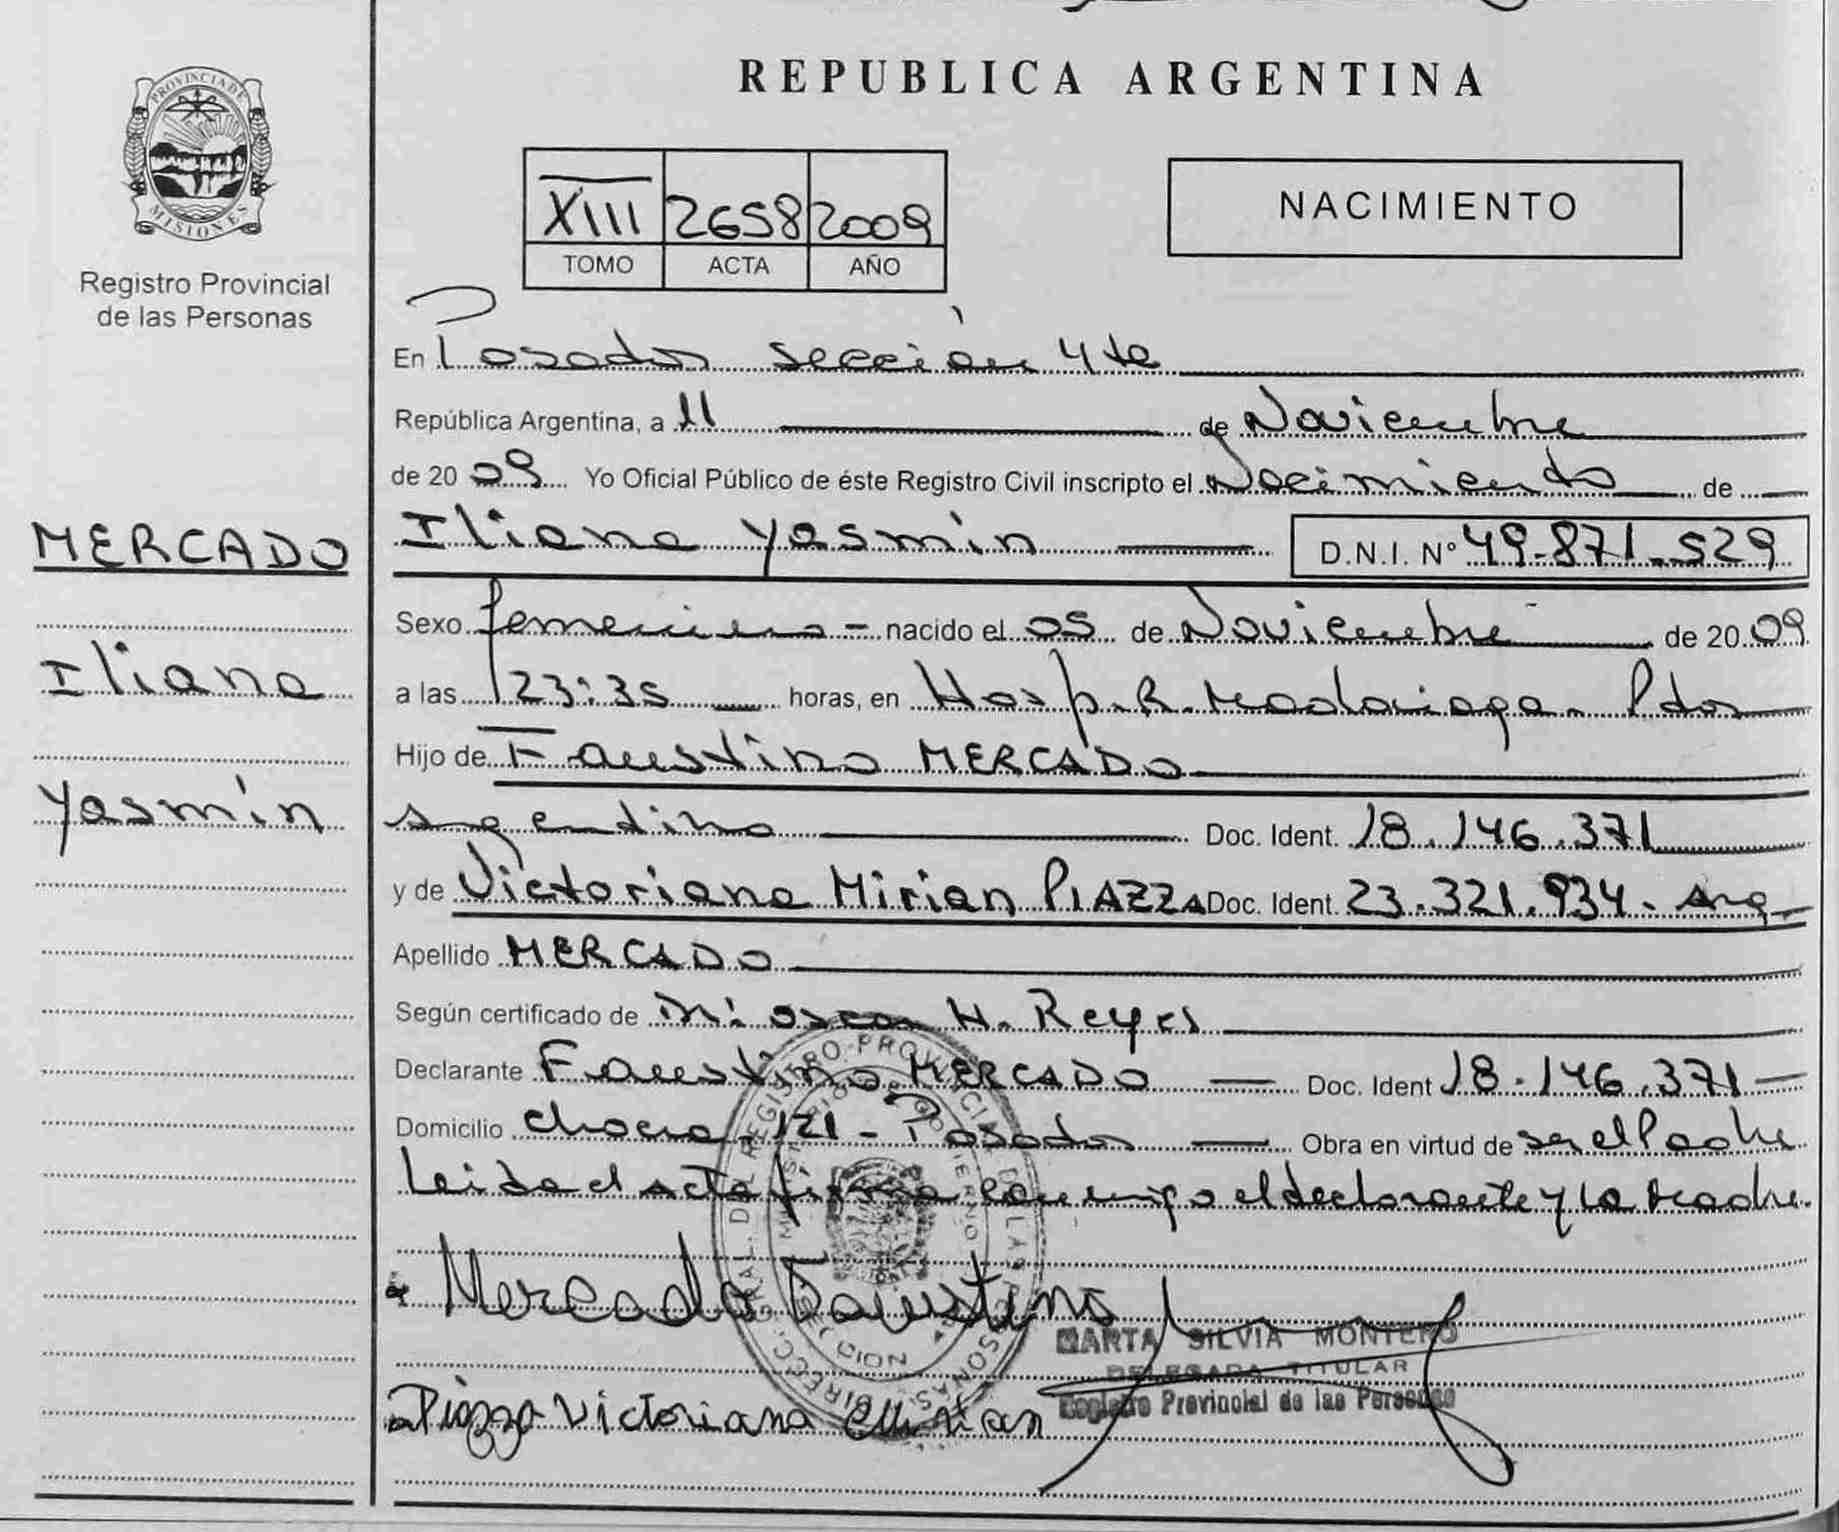 REPUBLICA ARGENTINA
PROVINCIA DE MISIONES
Registro Provincial
de las Personas
XIII 2658 2009
TOMO ACTA AÑO
NACIMIENTO
En Posadas sección 4ta
República Argentina, a 11 de Noviembre
de 2009 Yo Oficial Público de éste Registro Civil inscripto el Nacimiento de
MERCADO
Iliana
Yasmín
Iliana Yasmín D.N.I. N° 49.871.529
Sexo femenino - nacido el 05 de Noviembre de 2009
a las 23:35 horas, en Hosp. R. Madariaga - Pdas
Hijo de Faustino MERCADO
argentino Doc. Ident. 18.146.371
y de Victoriana Mirian PIAZZA Doc. Ident. 23.321.934 - Arg
Apellido MERCADO
Según certificado de Oscar H. Reyes
Declarante Faustino MERCADO Doc. Ident 18.146.371
Domicilio chacra 121 - Posadas Obra en virtud de ser el Padre
Leida el acta firma conmigo el declarante y la Madre.
Mercado Faustino
MARTA SILVIA MONTERO
DELEGADA TITULAR
Registro Provincial de las Personas
Piazza Victoriana Mirian